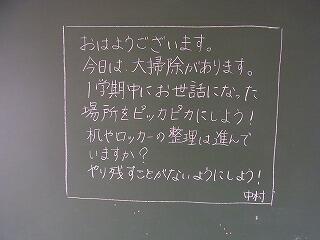 おはようございます。
今日は、大掃除があります。
1学期中にお世話になった
場所をピッカピカにしよう！
机やロッカーの整理は進んで
いますか？
やり残すことがないようにしよう！
中村